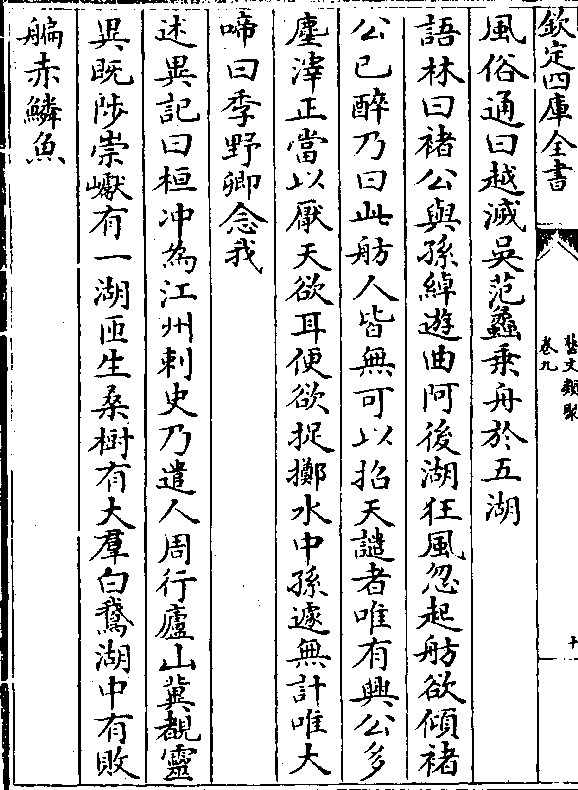 欽定四庫全書
藝文類聚
卷九
十
風俗通曰越滅吳范蠡乗舟於五湖
語林曰褚公與孫綽遊曲阿後湖狂風忽起舫欲傾褚
公已醉乃曰此舫人皆無可以招天譴者唯有興公多
塵滓正當以厭天欲耳便欲捉擲水中孫遽無計唯大
啼曰季野卿念我
述異記曰桓冲為江州刺史乃遣人周行廬山冀覩靈
異既陟崇巘有一湖匝生桑樹有大羣白鵞湖中有敗
艑赤鱗魚